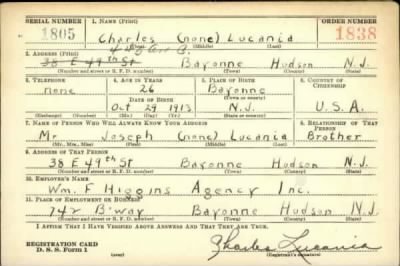 SERIAL NUMBER 1. NAME (Print) ORDER NUMBER
1805 Charles (none) Lucania 1838
(First) (Middle) (Last)
2. ADDRESS (Print)
38 E 49th St Bayonne Hudson N.J.
(Number and street or R. F. D. number) (Town) (County) (State)
3. TELEPHONE 4. AGE IN YEARS 5. PLACE OF BIRTH 6. COUNTRY OF CITIZENSHIP
none 26 Bayonne
DATE OF BIRTH (Town or county)
Oct 29 1913 N.J. U.S.A.
(Exchange) (No.) (Mo.) (Day) (Yr.) (State or country)
7. NAME OF PERSON WHO WILL ALWAYS KNOW YOUR ADDRESS 8. RELATIONSHIP OF THAT PERSON
Mr Joseph (none) Lucania Brother
(Mr., Mrs., Miss) (First) (Middle) (Last)
9. ADDRESS OF THAT PERSON
38 E 49th St Bayonne Hudson N.J.
(Number and street or R. F. D. number) (Town) (County) (State)
10. EMPLOYER'S NAME
Wm. F Higgins Agency Inc.
11. PLACE OF EMPLOYMENT OR BUSINESS
742 B'way Bayonne Hudson N.J.
(Number and street or R. F. D. number) (Town) (County) (State)
I AFFIRM THAT I HAVE VERIFIED ABOVE ANSWERS AND THAT THEY ARE TRUE.
REGISTRATION CARD
D. S. S. Form 1 Charles Lucania
(Registrant's signature)